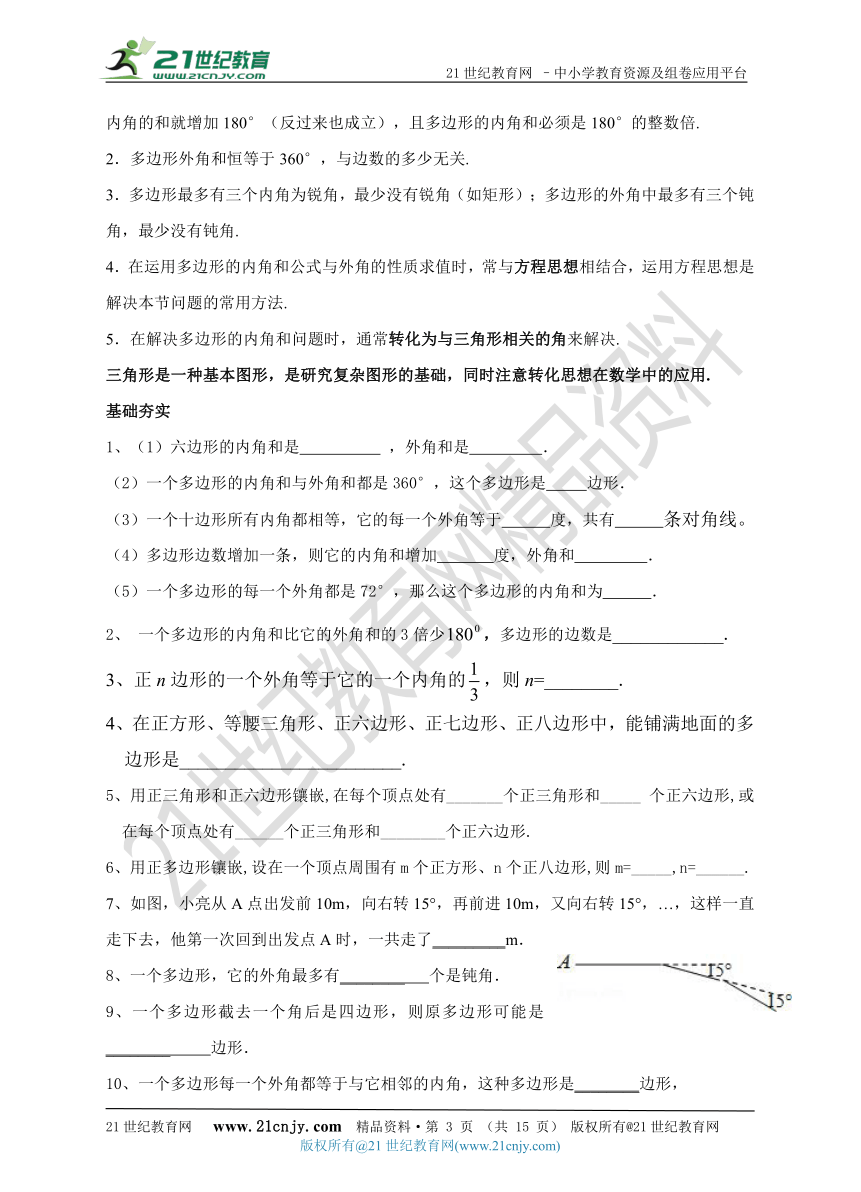 21世纪教育
WWW.21CNJY.COM
21世纪教育网 －中小学教育资源及组卷应用平台
内角的和就增加180°（反过来也成立），且多边形的内角和必须是180°的整数倍.
2．多边形外角和恒等于360°，与边数的多少无关.
3．多边形最多有三个内角为锐角，最少没有锐角（如矩形）；多边形的外角中最多有三个钝
角，最少没有钝角.
4．在运用多边形的内角和公式与外角的性质求值时，常与方程思想相结合，运用方程思想是
解决本节问题的常用方法.
5．在解决多边形的内角和问题时，通常转化为与三角形相关的角来解决.
三角形是一种基本图形，是研究复杂图形的基础，同时注意转化思想在数学中的应用．
基础夯实
1、（1）六边形的内角和是_________ ，外角和是_________．
（2）一个多边形的内角和与外角和都是360°，这个多边形是_____边形．
（3）一个十边形所有内角都相等，它的每一个外角等于______度，共有______条对角线。
（4）多边形边数增加一条，则它的内角和增加_______度，外角和_________．
（5）一个多边形的每一个外角都是72°，那么这个多边形的内角和为______．
2、 一个多边形的内角和比它的外角和的3倍少180⁰，多边形的边数是______________．
3、正n边形的一个外角等于它的一个内角的1/3，则n=________．
4、在正方形、等腰三角形、正六边形、正七边形、正八边形中，能铺满地面的多
边形是________________________．
5、用正三角形和正六边形镶嵌,在每个顶点处有_______个正三角形和_____ 个正六边形,或
在每个顶点处有______个正三角形和________个正六边形.
6、用正多边形镶嵌,设在一个顶点周围有m个正方形、n个正八边形,则m=_____,n=______.
7、如图，小亮从A点出发前10m，向右转15°，再前进10m，又向右转15°，…，这样一直
走下去，他第一次回到出发点A时，一共走了_________m．
A 15° 15°
8、一个多边形，它的外角最多有___________个是钝角．
9、一个多边形截去一个角后是四边形，则原多边形可能是
_____________边形．
10、一个多边形每一个外角都等于与它相邻的内角，这种多边形是________边形，
21世纪教育网精品资料
21世纪教育网 www.21cnjy.com 精品资料·第 3 页 （共 15 页） 版权所有@21世纪教育网
版权所有@21世纪教育网(www.21cnjy.com)